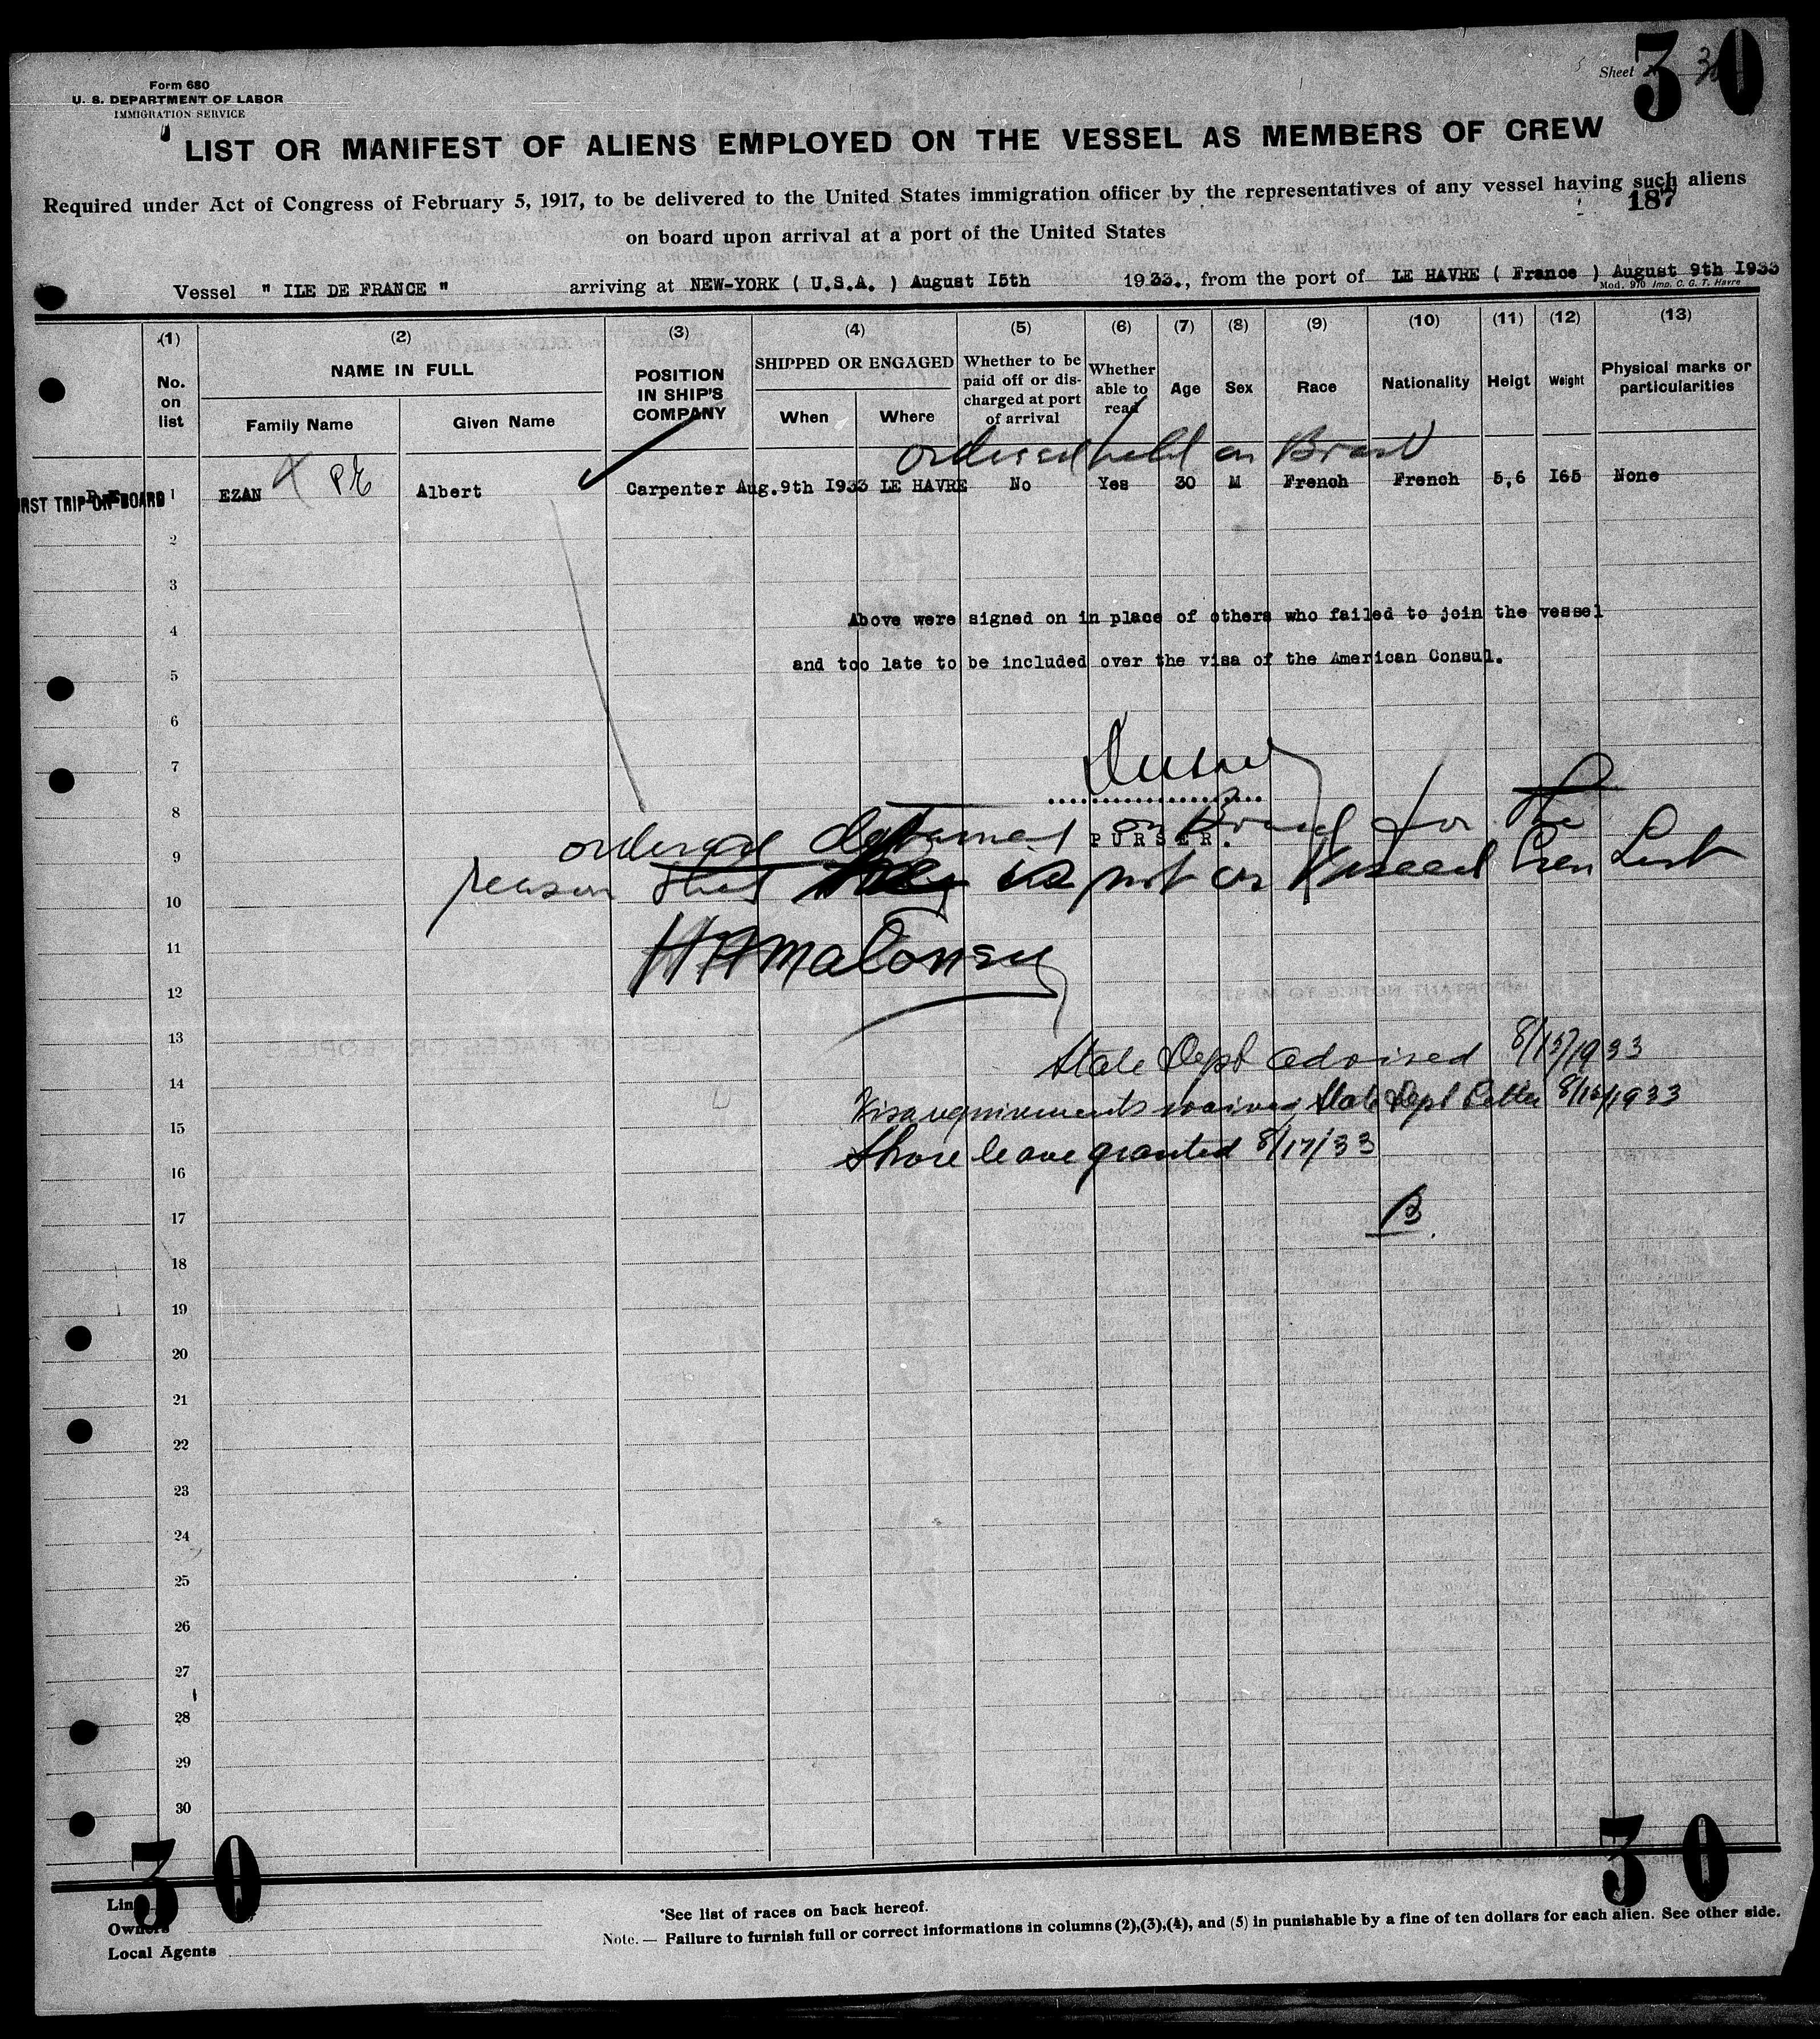 Form 680
U. S. DEPARTMENT OF LABOR
IMMIGRATION SERVICE
Sheet 30
30
LIST OR MANIFEST OF ALIENS EMPLOYED ON THE VESSEL AS MEMBERS OF CREW
Required under Act of Congress of February 5, 1917, to be delivered to the United States immigration officer by the representatives of any vessel having such aliens
187
on board upon arrival at a port of the United States
Vessel " ILE DE FRANCE " arriving at NEW-YORK ( U.S.A. ) August I5th 1933., from the port of LE HAVRE ( France ) August 9th I933
Mod. 970 Imp. C. G. T. Havre
(1) (2) (3) (4) (5) (6) (7) (8) (9) (10) (11) (12) (13)
No. on list
NAME IN FULL
Family Name Given Name
POSITION IN SHIP'S COMPANY
SHIPPED OR ENGAGED
When Where
Whether to be paid off or discharged at port of arrival
Whether able to read
Age Sex Race Nationality Heigt Weight
Physical marks or particularities
ordered held on Board
RST TRIP ON BOARD 1 EZAN X PE Albert Carpenter Aug.9th I933 LE HAVRE No Yes 30 M French French 5,6 I65 None
2
3
Above were signed on in place of others who failed to join the vessel
4
and too late to be included over the visa of the American Consul.
5
6
7
8
PURSER.
ordered detained on Board for the
9
reason that is not on Visaed Crew List
10
11
H A Maloney
12
13
State Dept advised 8/15/1933
14
Visa requirements waived State Dept Letter 8/16/1933
15
Shore leave granted 8/17/33
16
17
B.
18
19
20
21
22
23
24
25
26
27
28
29
30
30 30
Line
Owners
Local Agents
*See list of races on back hereof.
Note. — Failure to furnish full or correct informations in columns (2),(3),(4), and (5) in punishable by a fine of ten dollars for each alien. See other side.